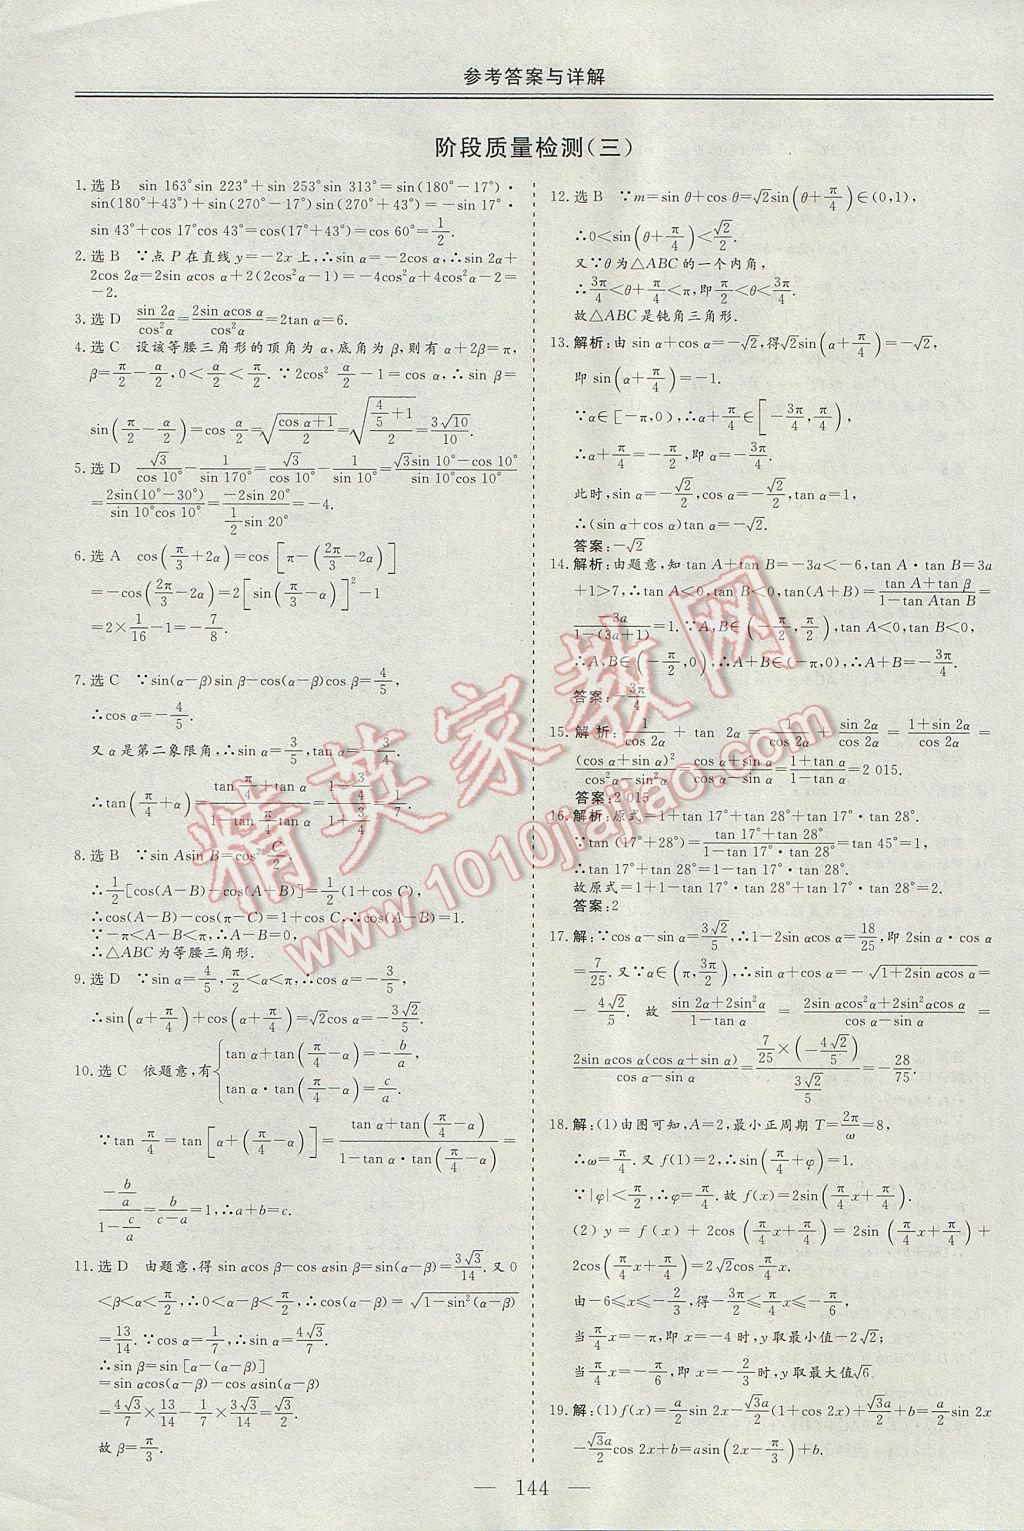 参考答案与详解
阶段质量检测(三)
1. 选 B　sin 163°sin 223°+sin 253°sin 313°=sin(180°-17°)·
sin(180°+43°)+sin(270°-17°)sin(270°+43°)=-sin 17°·
sin 43°+cos 17°cos 43°=cos(17°+43°)=cos 60°=1/2.
2. 选 B　∵点 P 在直线 y=-2x 上,∴sin α=-2cos α,∴sin 2α+
2cos 2α=2sin αcos α+2(2cos²α-1)=-4cos²α+4cos²α-2=
-2.
3. 选 D　sin 2α/cos²α=2sin αcos α/cos²α=2tan α=6.
4. 选 C　设该等腰三角形的顶角为 α,底角为 β,则有 α+2β=π,
β=π/2-α/2,0<α/2<π/2.∵2cos² α/2-1=cos α,∴sin β=
sin(π/2-α/2)=cos α/2=√((cos α+1)/2)=√((4/5+1)/2)=3√10/10.
5. 选 D　√3/cos 10°-1/sin 170°=√3/cos 10°-1/sin 10°=(√3sin 10°-cos 10°)/(sin 10°cos 10°)
=2sin(10°-30°)/(sin 10°cos 10°)=-2sin 20°/(1/2 sin 20°)=-4.
6. 选 A　cos(π/3+2α)=cos[π-(2π/3-2α)]
=-cos(2π/3-2α)=2[sin(π/3-α)]²-1
=2×1/16-1=-7/8.
7. 选 C　∵sin(α-β)sin β-cos(α-β)cos β=4/5,
∴cos α=-4/5.
又 α 是第二象限角,∴sin α=3/5,tan α=-3/4.
∴tan(π/4+α)=(tan π/4+tan α)/(1-tan π/4 tan α)=(1-3/4)/(1+3/4)=1/7.
8. 选 B　∵sin Asin B=cos² C/2,
∴1/2[cos(A-B)-cos(A+B)]=1/2(1+cos C),
∴cos(A-B)-cos(π-C)=1+cos C,∴cos(A-B)=1.
∵-π<A-B<π,∴A-B=0,
∴△ABC为等腰三角形.
9. 选 D　∵sin α=4/5,π/2<α<π,∴cos α=-3/5,
∴sin(α+π/4)+cos(α+π/4)=√2cos α=-3√2/5.
10. 选 C　依题意,有{tan α+tan(π/4-α)=-b/a,
tan α·tan(π/4-α)=c/a.
∵tan π/4=tan[α+(π/4-α)]=(tan α+tan(π/4-α))/(1-tan αtan(π/4-α))=
(-b/a)/(1-c/a)=b/(c-a)=1,∴a+b=c.
11. 选 D　由题意,得 sin αcos β-cos αsin β=sin(α-β)=3√3/14.又 0
<β<α<π/2,∴0<α-β<π/2,∴cos(α-β)=√(1-sin²(α-β))
=13/14.∵cos α=1/7,∴sin α=4√3/7.
∴sin β=sin[α-(α-β)]
=sin αcos(α-β)-cos αsin(α-β)
=4√3/7×13/14-1/7×3√3/14=√3/2.
故 β=π/3.
12. 选 B　∵m=sin θ+cos θ=√2sin(θ+π/4)∈(0,1),
∴0<sin(θ+π/4)<√2/2.
又∵θ 为△ABC的一个内角,
∴3π/4<θ+π/4<π,即π/2<θ<3π/4.
故△ABC是钝角三角形.
13. 解析:由 sin α+cos α=-√2,得√2sin(α+π/4)=-√2,
即 sin(α+π/4)=-1.
∵α∈[-π,0),∴α+π/4∈[-3π/4,π/4),
∴α+π/4=-π/2,即 α=-3π/4.
此时,sin α=-√2/2,cos α=-√2/2,tan α=1,
∴(sin α+cos α)tan α=-√2.
答案:-√2
14. 解析:由题意,知 tan A+tan B=-3a<-6,tan A·tan B=3a
+1>7,∴tan A<0,tan B<0,tan(A+B)=(tan A+tan β)/(1-tan Atan B)=
-3a/(1-(3a+1))=1.∵A,B∈(-π/2,π/2),tan A<0,tan B<0,
∴A,B∈(-π/2,0),∴A+B∈(-π,0),∴A+B=-3π/4.
答案:-3π/4
15. 解析:1/cos 2α+tan 2α=1/cos 2α+sin 2α/cos 2α=(1+sin 2α)/cos 2α=
(cos α+sin α)²/(cos²α-sin²α)=(cos α+sin α)/(cos α-sin α)=(1+tan α)/(1-tan α)=2 015.
答案:2 015
16. 解析:原式=1+tan 17°+tan 28°+tan 17°·tan 28°.
∵tan(17°+28°)=(tan 17°+tan 28°)/(1-tan 17°·tan 28°)=tan 45°=1,
∴tan 17°+tan 28°=1-tan 17°·tan 28°.
故原式=1+1-tan 17°·tan 28°+tan 17°·tan 28°=2.
答案:2
17. 解:∵cos α-sin α=3√2/5,∴1-2sin αcos α=18/25,即 2sin α·cos α
=7/25.又∵α∈(π,3π/2),∴sin α+cos α=-√(1+2sin αcos α)=
-4√2/5.故(sin 2α+2sin²α)/(1-tan α)=(2sin αcos²α+2sin²αcos α)/(cos α-sin α)=
2sin αcos α(cos α+sin α)/(cos α-sin α)=(7/25×(-4√2/5))/(3√2/5)=-28/75.
18. 解:(1)由图可知,A=2,最小正周期 T=2π/ω=8,
∴ω=π/4.又 f(1)=2,∴sin(π/4+φ)=1.
∵|φ|<π/2,∴φ=π/4.故 f(x)=2sin(π/4 x+π/4).
(2) y=f(x)+2cos(π/4 x+π/4)=2sin(π/4 x+π/4)+
2cos(π/4 x+π/4)=2√2cos π/4 x.
由-6≤x≤-2/3,得-3π/2≤π/4 x≤-π/6,
当π/4 x=-π,即 x=-4 时,y 取最小值-2√2;
当π/4 x=-π/6,即 x=-2/3时,y 取最大值√6.
19. 解:(1)f(x)=a/2 sin 2x-√3a/2(1+cos 2x)+√3a/2+b=a/2 sin 2x
-√3a/2 cos 2x+b=asin(2x-π/3)+b.
— 144 —
精英家教网
www.1010jiajiao.com